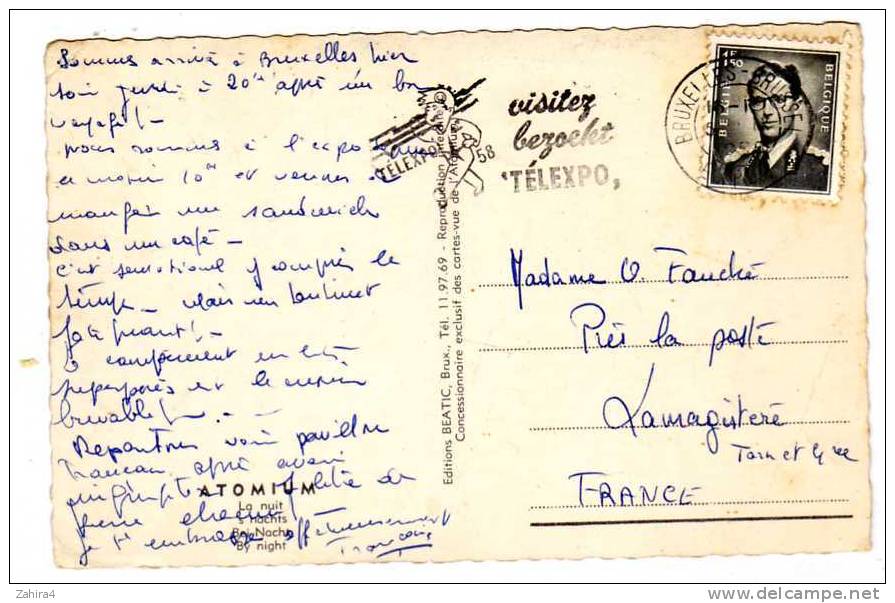 Sommes arrivé à Bruxelles hier
soir jeudi à 20h après un bon
voyage! -
nous sommes à l'expo
ce matin 10h et venons de
manger un sandwich
dans un café -
c'est sensationnel y compris le
temps - mais
fatiguant! -
le campement en
est le
buvable! - . -
Repartons voir pavillon
français après avoir
de
bière chacun
je t'embrasse affectueusement
François
ATOMIUM
La nuit
's nachts
Bei Nacht
By night
Editions BEATIC, Brux., Tél. 11.97.69 - Reproduction interdite
Concessionnaire exclusif des cartes-vue de l'Atomium
TÉLEXPO
58
visitez
bezoekt
'TÉLEXPO,
BRUXELLES - BRUSSEL
1F50
BELGIE
BELGIQUE
Madame O. Fauché
Près la poste
Lamagistère
Tarn et Gne
FRANCE
Zahira4
www.delcampe.net